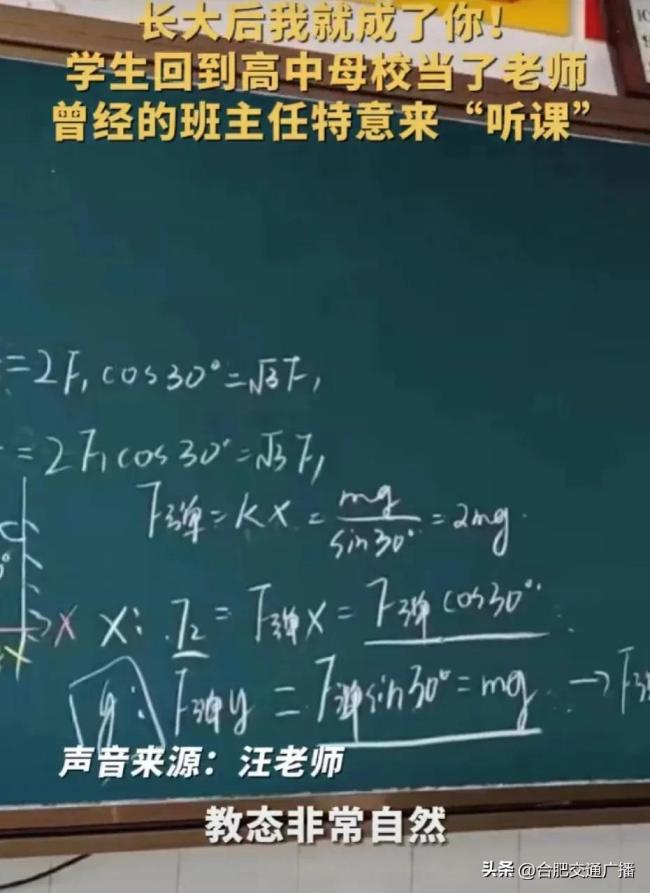 长大后我就成了你！
学生回到高中母校当了老师
曾经的班主任特意来“听课”
=2F₁cos30°=√3F₁
=2F₁cos30°=√3F₁
F弹=kx=mg/sin30°=2mg
x
x: T₂=F弹x=F弹cos30°
y: F弹y=F弹sin30°=mg→F弹
声音来源：汪老师
教态非常自然
头条@合肥交通广播